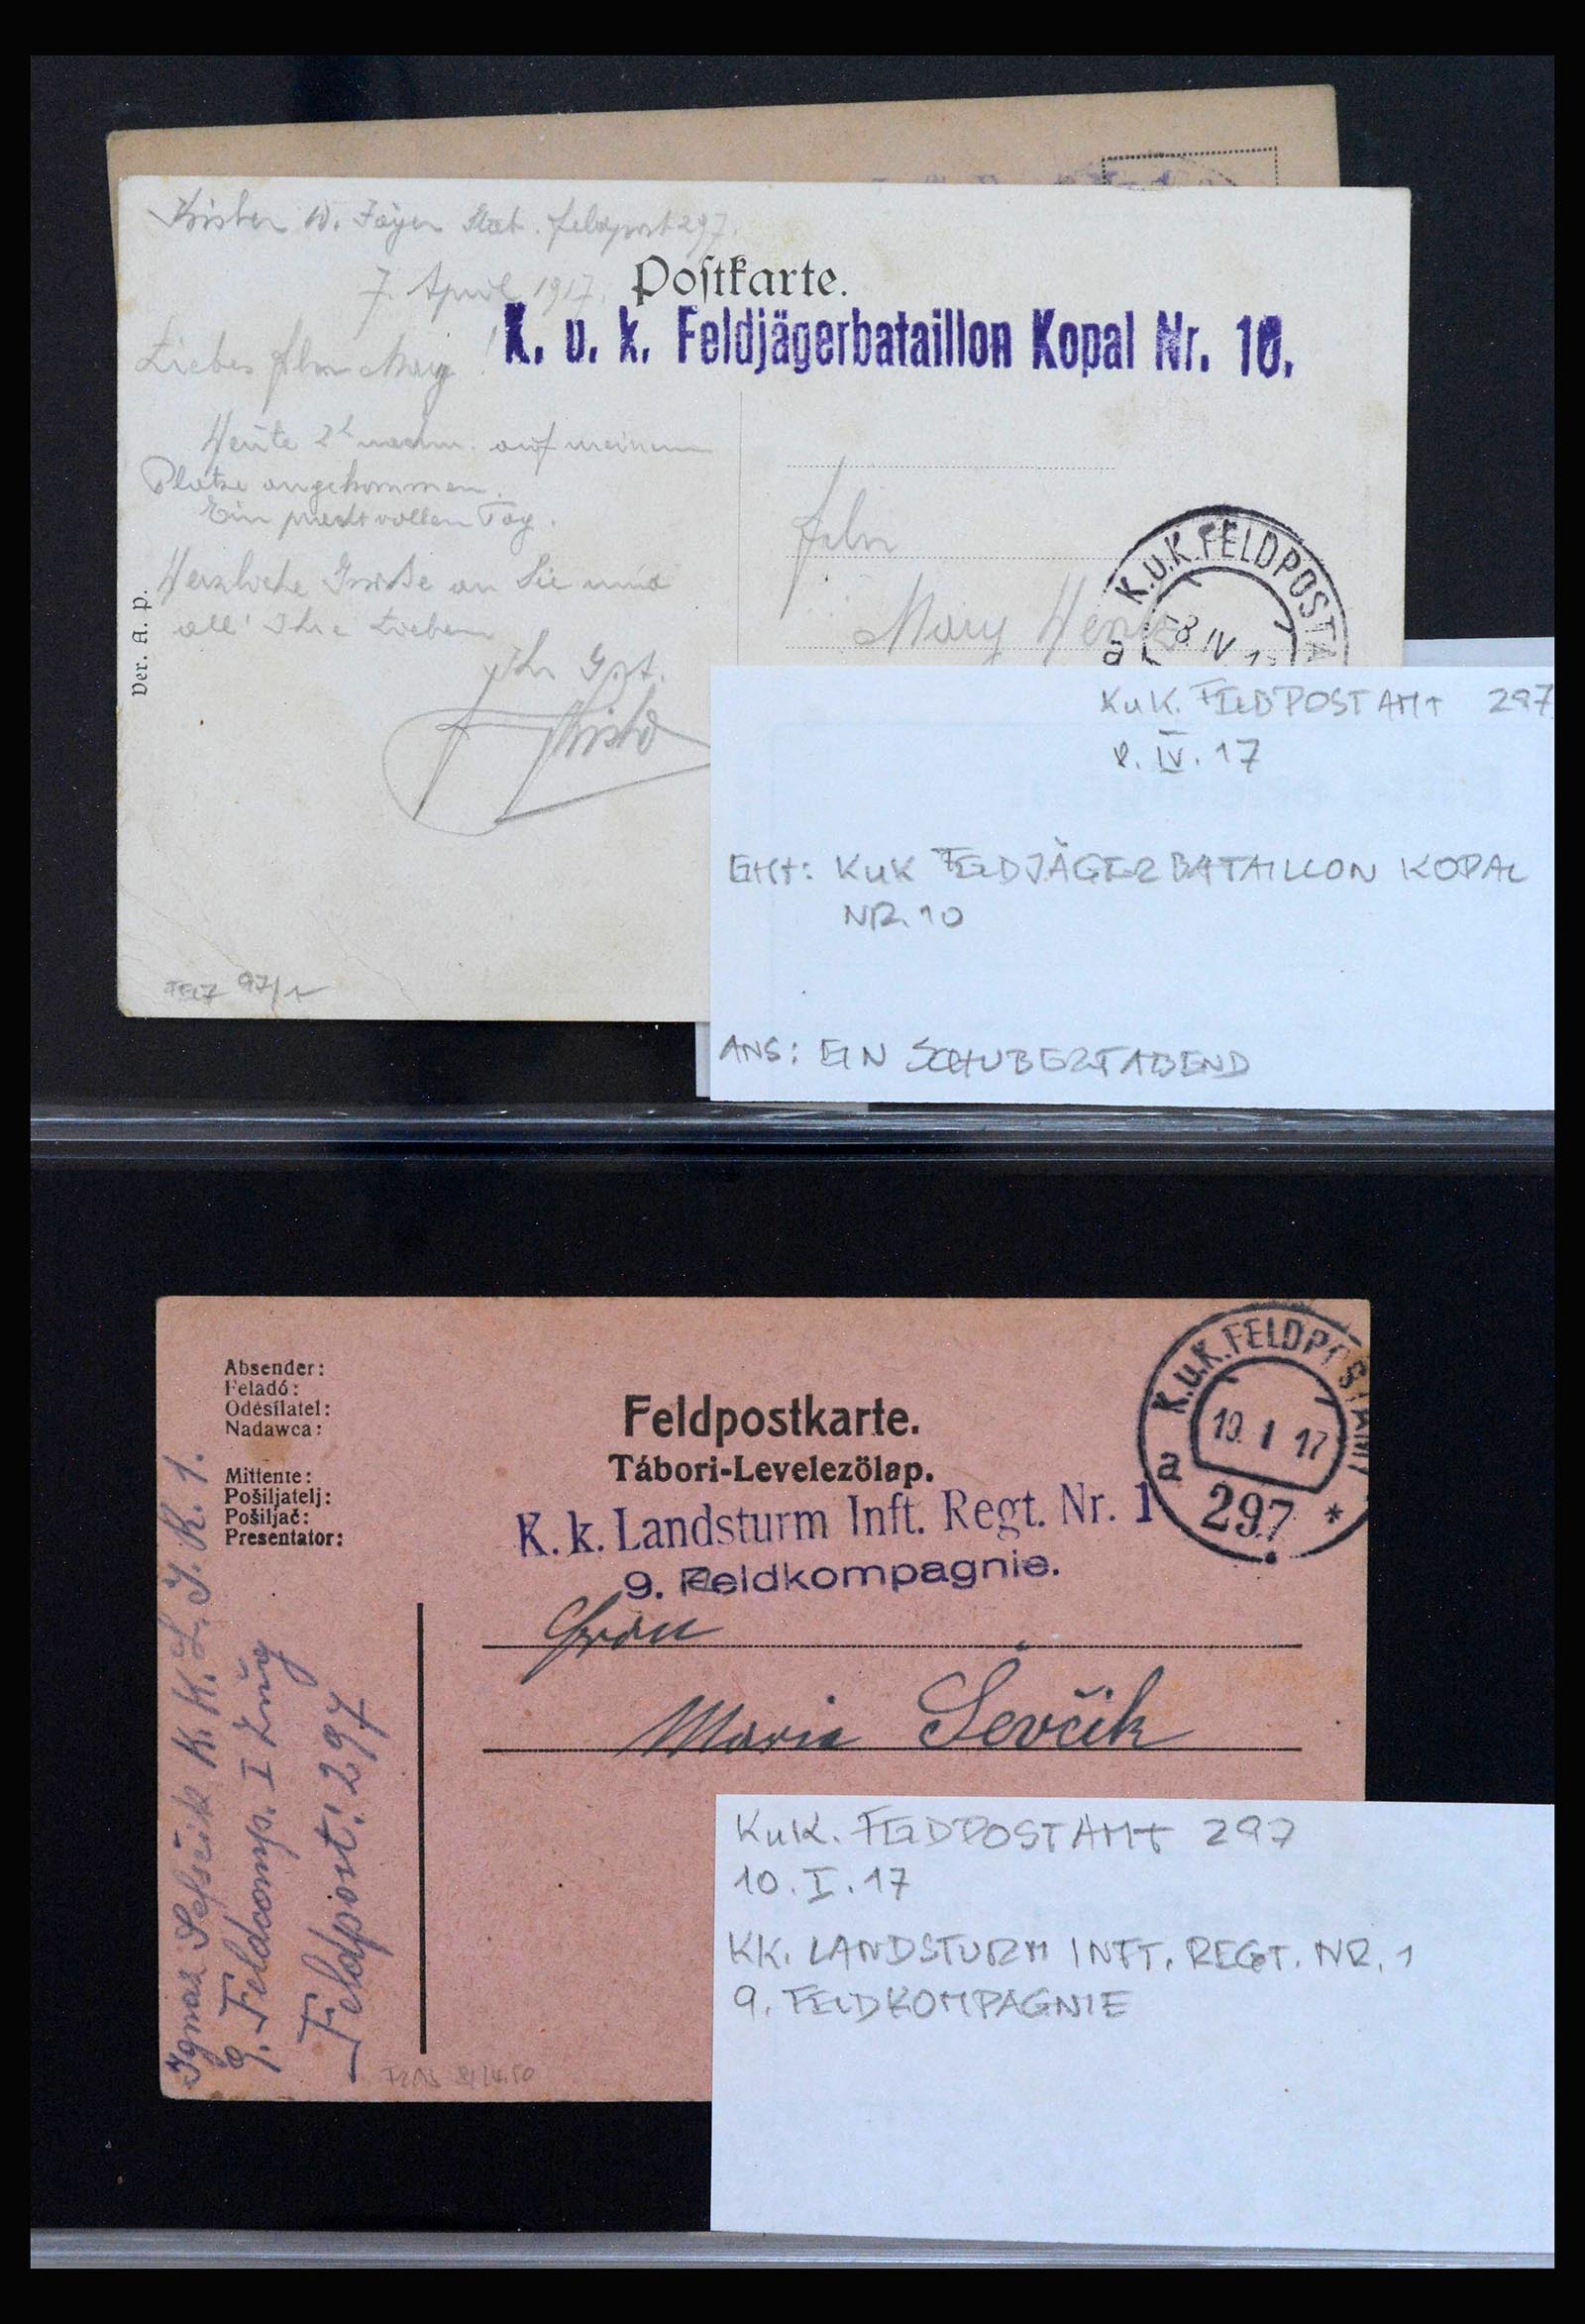 10. Jäger Bat. Feldpost 297.
7. April 1917.
Postkarte.
K. u. k. Feldjägerbataillon Kopal Nr. 10.
Liebes
Heute 2h nachm. auf meinem
Platze angekommen.
Ein prachtvoller Tag.
Herzliche Grüße an Sie und
all' Ihre Lieben
Ihr
Ver. A. p.
Mary
K.u.K. FELDPOSTA
8 IV 1
a
97/1
KuK. FELDPOSTAMT 297
8. IV. 17
KuK FELDJÄGERBATAILLON KOPAL
NR. 10
ANS: EIN SCHUBERTABEND
Absender:
Feladó:
Odesílatel:
Nadawca:
Mittente:
Pošiljatelj:
Pošiljač:
Presentator:
Feldpostkarte.
Tábori-Levelezölap.
K. k. Landsturm Inft. Regt. Nr. 1
9. Feldkompagnie.
K.u.K. FELDPOSTAMT
10. I 17
a
297 *
Frau
Maria Ševčik
Ignaz K. K. L. I. R. 1.
9. Feldcomp. I Zug
Feldpost: 297
KuK. FELDPOSTAMT 297
10. I. 17
KK. LANDSTURM INFT. REGT. NR. 1
9. FELDKOMPAGNIE